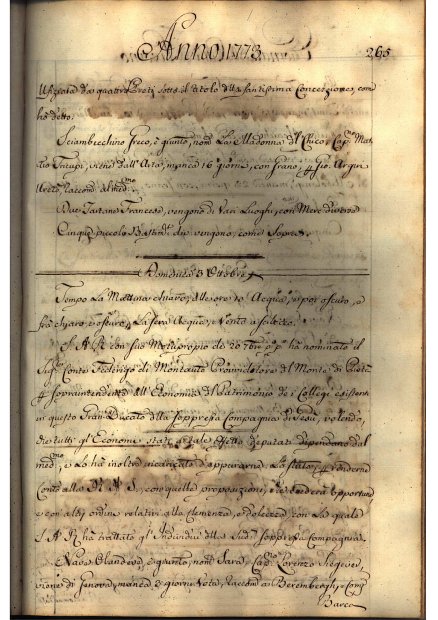 Anno 1773
265
Uficiata da quattro Preti sotto il titolo della Santissima Concezzione, com
ho detto.
Sciambecchino Greco, è giunto, nom. La Madonna d'l Chuco, Cap.no
viene dall'Arta, manca 16 giorni, con Grano, p Gio.
raccom. al med.mo
Due Tartane Francesi, vengono di Vari Luoghi, con Merc. diverse
Cinque piccoli Bastim.ti vengono, come Sopra.
Domenica 3 Ottobre
Tempo La Mattina chiaro, alle ore 10 Acqua, e poi oscuro, e
frà chiaro, e oscuro, La sera Acqua, e Vento a
S. A. R. con suo Motuproprio de 20 7bre pp. ha nominato il
Sig.r Conte Federigo di Montauto Provveditore del Monte di Pietà
p Sopraintendente all'Economia del Patrimonio de i Collegi esistenti
in questo Gran Ducato della Soppressa Compagnia di Gesù, volendo,
che tutti gl'Economi stati a tale effetto deputati dependano dal
med.mo, e Lo ha inoltre incaricato d'appurarne Lo stato, p renderne
Conto alla R. A. S., con quelle proposizioni, che crederà opportune
e con altri ordini relativi alla clemenza, e dolcezza, con La quale
S. A. R. ha trattato gl'Individui della Sud.a soppressa Compagnia.
Nave Olandese, è giunta, nom. Sara, Cap.no Lorenzo
viene di Genova, manca 2 giorni, Vota, Raccom. a Berembergh, e Comp.
Barca